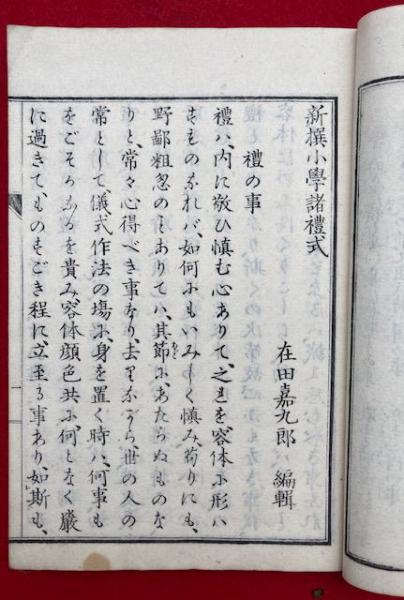 新撰小學諸禮式
在田嘉九郎 編輯
禮の事
禮ハ、内に敬ひ慎む心ありて、之を容体に形ハ
すものなれバ、如何にもいみじく慎み、苟りにも、
野鄙粗忽のことありてハ、其節に、あたらぬものな
りと、常々、心得べき事なり、去りながら、世の人の
常として、儀式作法の塲に、身を置く時ハ、何事も
をごそかなるを貴み、容体顔色共に、何となく嚴
に過きて、ものすごき程に、立至る事あり、如斯も、